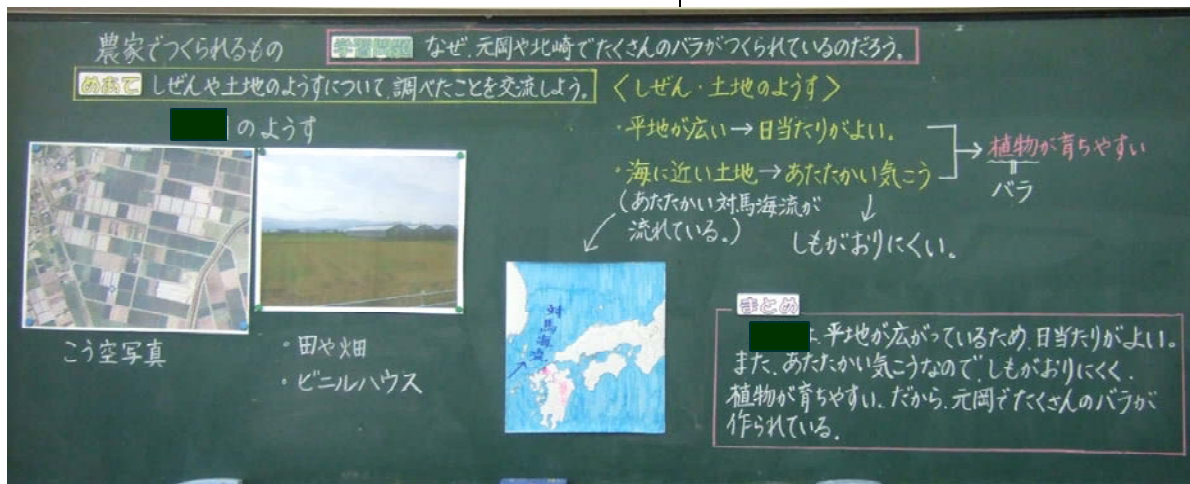 農家でつくられるもの
学習問題 なぜ、元岡や北崎でたくさんのバラがつくられているのだろう。
めあて しぜんや土地のようすについて、調べたことを交流しよう。
のようす
こう空写真
・田や畑
・ビニルハウス
〈しぜん・土地のようす〉
・平地が広い→日当たりがよい。
・海に近い土地→あたたかい気こう
(あたたかい対馬海流が
流れている。)
しもがおりにくい。
植物が育ちやすい
バラ
対馬海流
まとめ
は、平地が広がっているため、日当たりがよい。
また、あたたかい気こうなので、しもがおりにくく、
植物が育ちやすい。だから、元岡でたくさんのバラが
作られている。